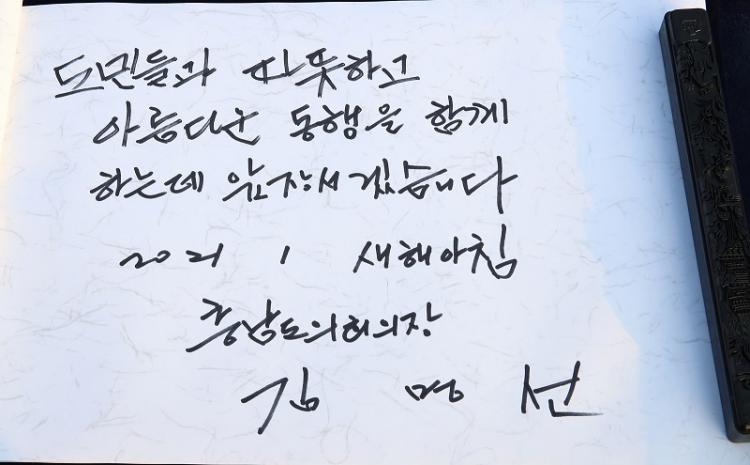 도민들과 따뜻하고
아름다운 동행을 함께
하는데 앞장서겠습니다
2021 1 새해아침
충남도의회의장
김 명 선